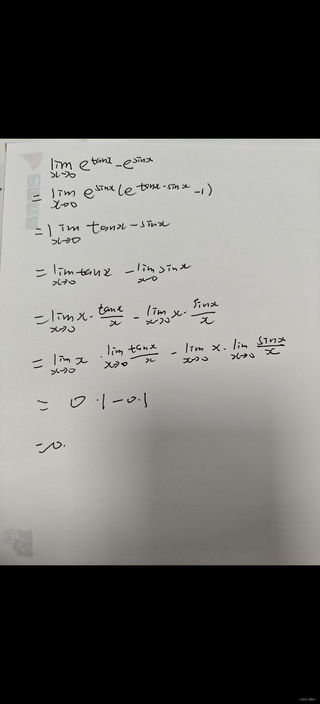 lim x→0 e^tanx - e^sinx
= lim x→0 e^sinx (e^tanx-sinx - 1)
= lim x→0 tanx - sinx
= lim x→0 tanx - lim x→0 sinx
= lim x→0 x · tanx/x - lim x→0 x · sinx/x
= lim x→0 x · lim x→0 tanx/x - lim x→0 x · lim x→0 sinx/x
= 0·1-0·1
=0.